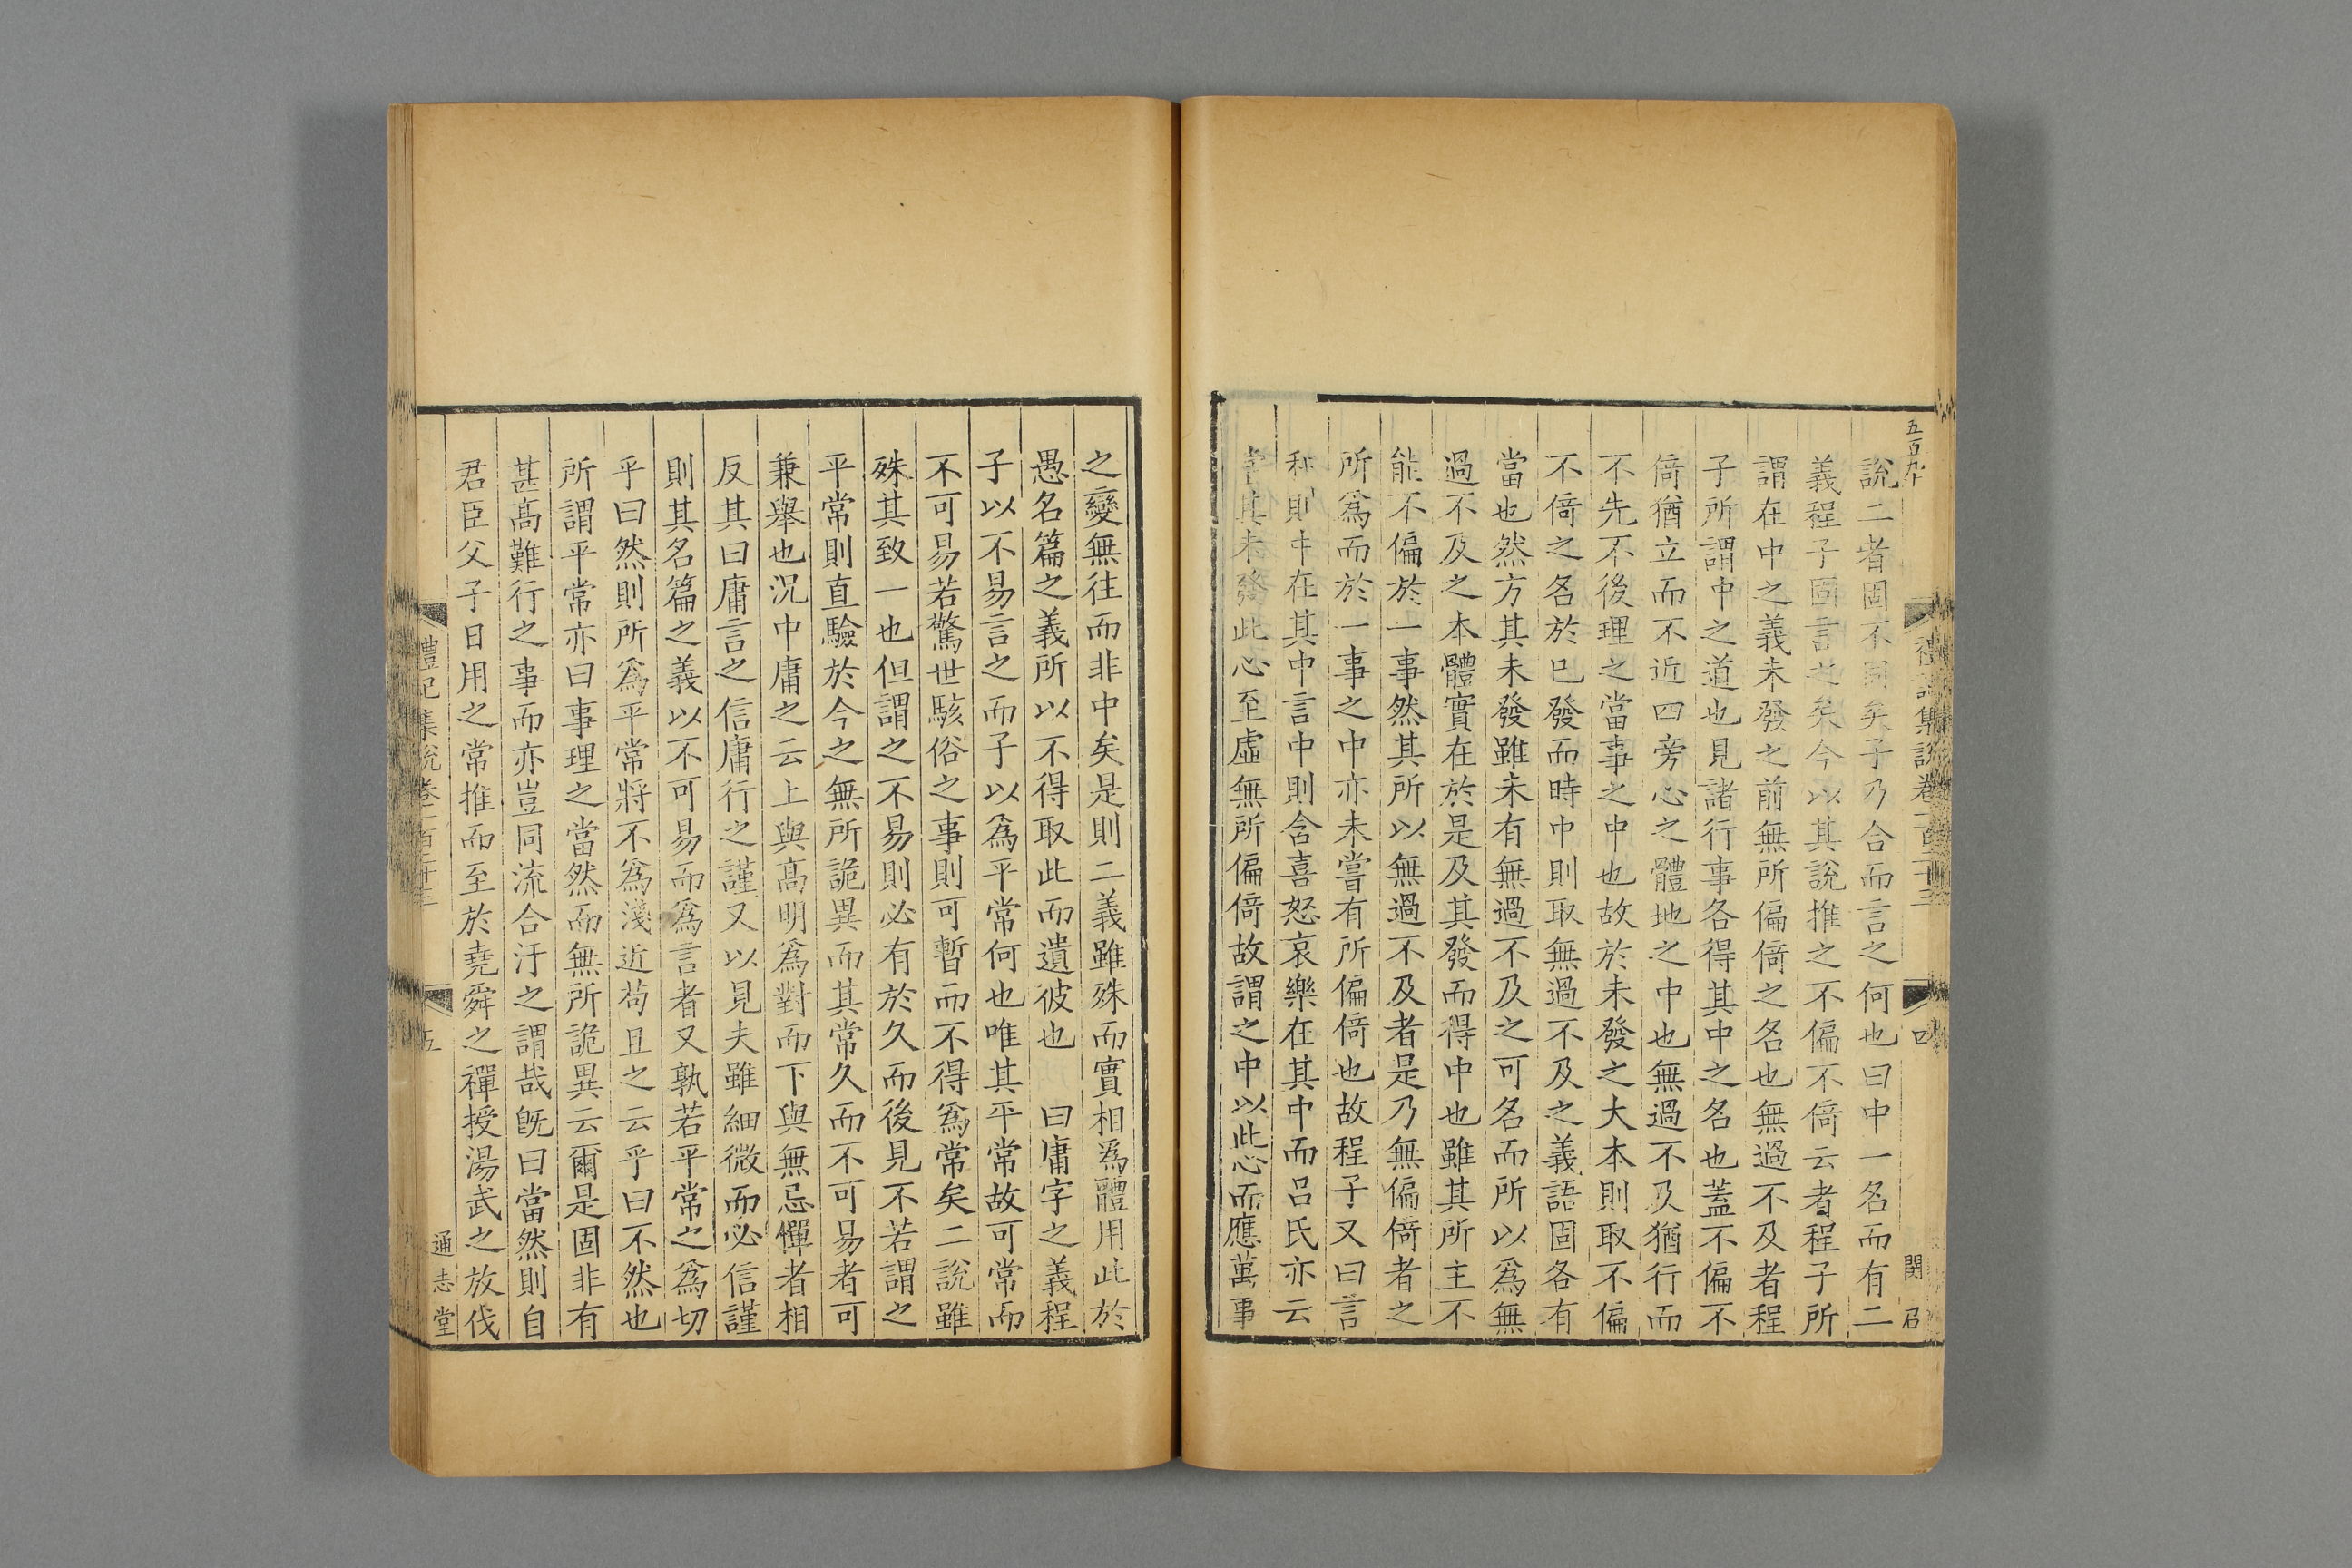 說二者固不同矣子乃合而言之何也曰中一名而有二
義程子固言之矣今以其說推之不偏不倚云者程子所
謂在中之義未發之前無所偏倚之名也無過不及者程
子所謂中之道也見諸行事各得其中之名也蓋不偏不
倚猶立而不近四旁心之體地之中也無過不及猶行而
不先不後理之當事之中也故於未發之大本則取不偏
不倚之名於已發而時中則取無過不及之義語固各有
當也然方其未發雖未有無過不及之可名而所以爲無
過不及之本體實在於是及其發而得中也雖其所主不
能不偏於一事然其所以無過不及者是乃無偏倚者之
所爲而於一事之中亦未嘗有所偏倚也故程子又曰言
和則中在其中言中則含喜怒哀樂在其中而呂氏亦云
當其未發此心至虛無所偏倚故謂之中以此心而應萬事
禮記集說卷一百二十三
四
之變無往而非中矣是則二義雖殊而實相爲體用此於
愚名篇之義所以不得取此而遺彼也 曰庸字之義程
子以不易言之而子以爲平常何也唯其平常故可常而
不可易若驚世駭俗之事則可暫而不得爲常矣二說雖
殊其致一也但謂之不易則必有於久而後見不若謂之
平常則直驗於今之無所詭異而其常久而不可易者可
兼舉也況中庸之云上與高明爲對而下與無忌憚者相
反其曰庸言之信庸行之謹又以見夫雖細微而必信謹
則其名篇之義以不可易而爲言者又孰若平常之爲切
乎曰然則所爲平常將不爲淺近苟且之云乎曰不然也
所謂平常亦曰事理之當然而無所詭異云爾是固非有
甚高難行之事而亦豈同流合汙之謂哉旣曰當然則自
君臣父子日用之常推而至於堯舜之禪授湯武之放伐
禮記集說卷一百二十三
五
通志堂